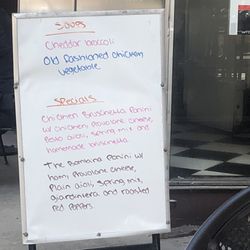 Soups
Cheddar broccoli
Old fashioned chicken
vegetable
Specials
Chicken Bruschetta Panini
w/ chicken, Provolone cheese,
Pesto aioli, spring mix and
homemade bruschetta
The Romana Panini w/
ham, Provolone cheese,
Plain aioli, spring mix,
giardiniera and roasted
red peppers